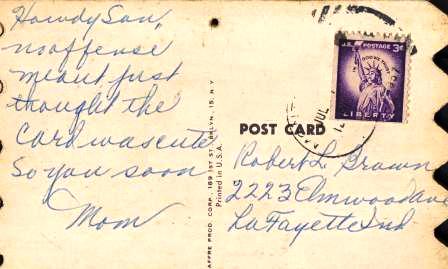 Howdy Son,
no offense
meant just
thought the
Card was cute
So you soon
Mom
AFFRE PROD. CORP., 189 1ST ST., BKLYN. 15, N.Y.
Printed in U.S.A.
U.S. POSTAGE 3¢
IN GOD WE TRUST
LIBERTY
JUL
POST CARD
Robert L. Brown
2223 Elmwood Ave
LaFayette Ind